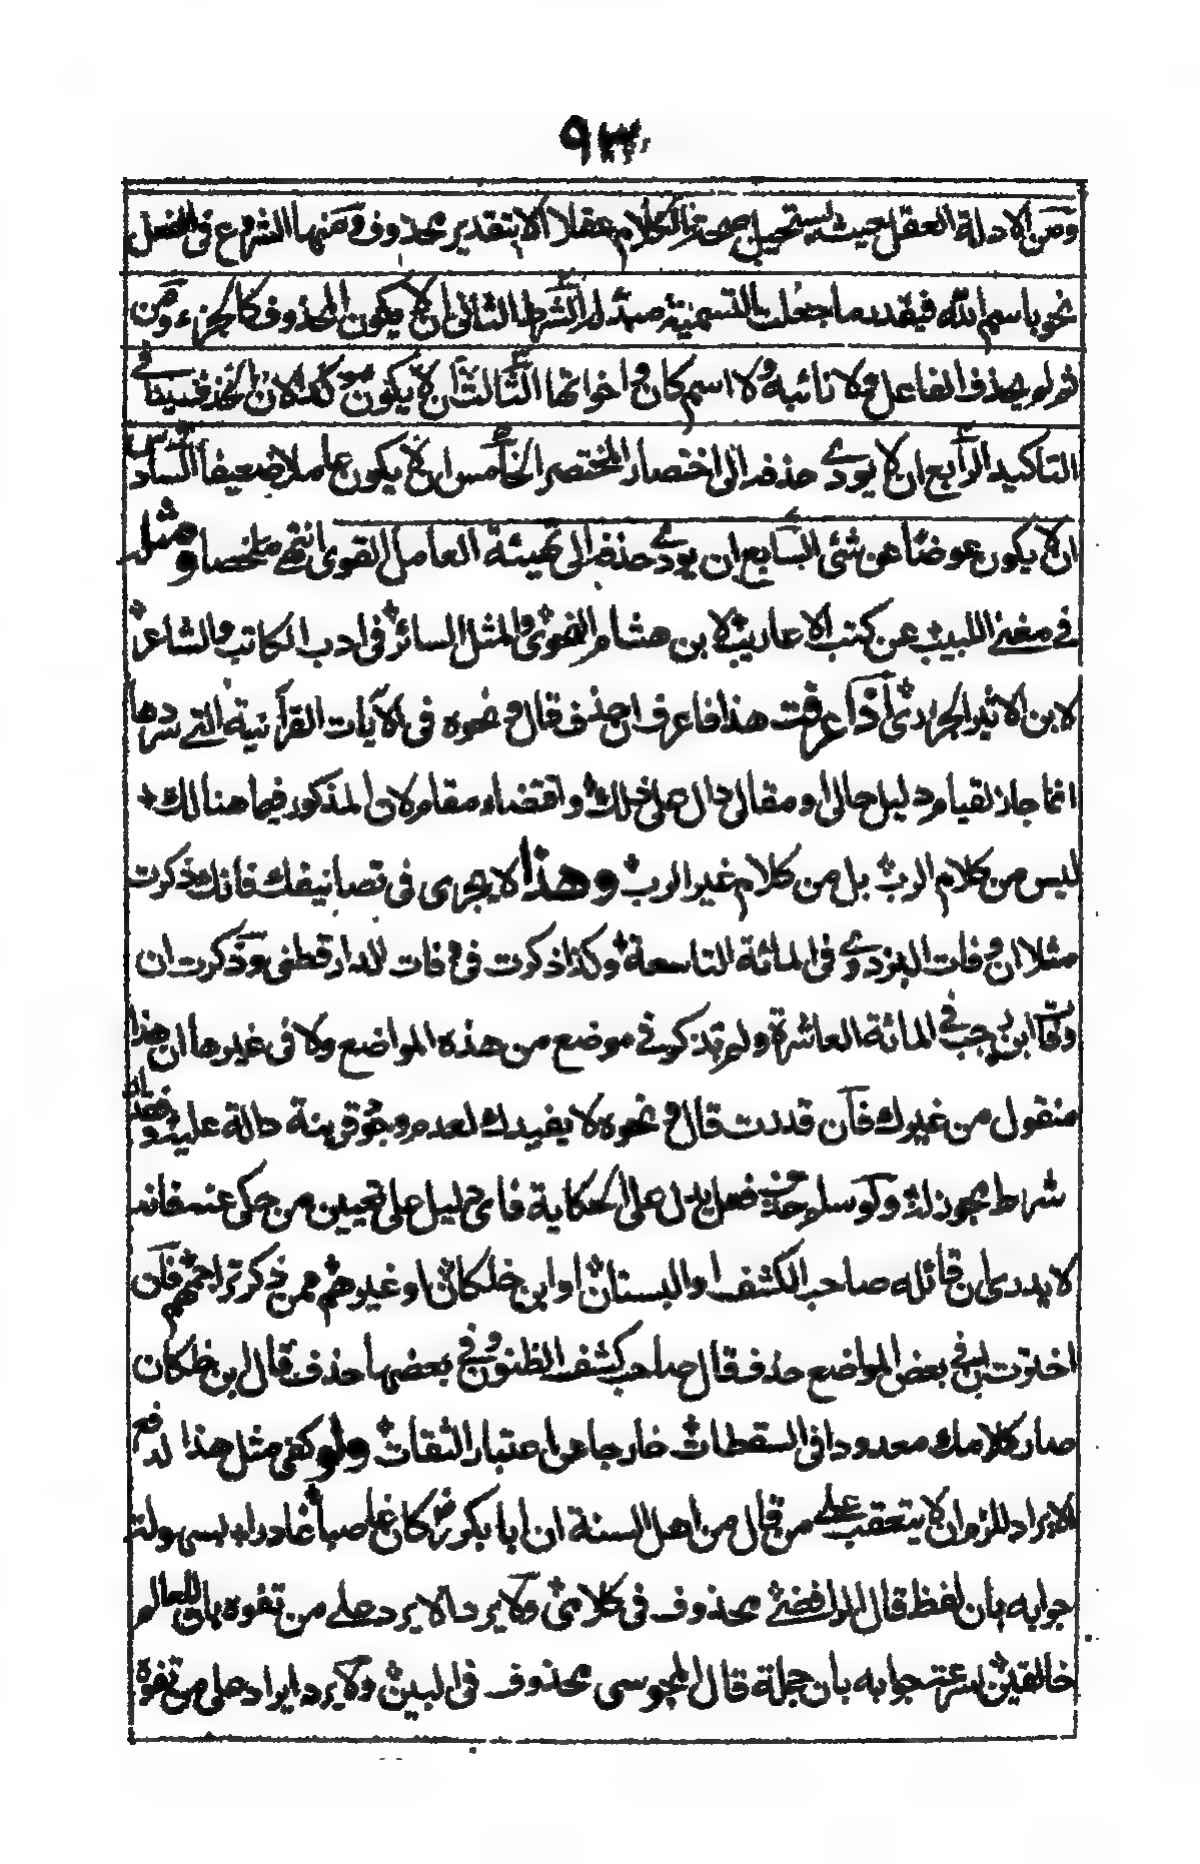 ٩٣
ومن الادلة العقل حيث يستحيل صحة الكلام عقلا الا بتقدير محذوف ومنها الشروع في الفعل
نحو باسم الله فيقدر ما جعلت التسمية مبدأ له الشرط الثانى ان لا يكون المحذوف كالجزء ومن
ثم لم يحذف الفاعل ولا نائبه ولا اسم كان واخواتها الثالث ان لا يكون مؤكدا لان الحذف مناف
التاكيد الرابع ان لا يودے حذفه الى اختصار المختصر الخامس ان لا يكون عاملا ضعيفا السادس
ان لا يكون عوضا عن شئ السابع ان يودے حذفه الى تهيئة العامل القوى انتهى ملخصا ومثله
في مغنى اللبيب عن كتب الاعاريب لابن هشام النحوى والمثل السائر في ادب الكاتب والشاعر
لابن الاثير الجزرى اذا عرفت هذا فاعرف ان حذف قال ونحوه فى الآيات القرآنية التى سردها
انما جاز لقيام دليل حالى او مقالى دال على ذلك واقتضاء مقام لان المذكور فيما هنالك
ليس من كلام الرب بل من كلام غير الرب وهذا لا يجرى فى تصانيفك فانك ذكرت
مثلا ان وفات البزدوے فى المائة التاسعة وكذا ذكرت فى وفات الدارقطنى وذكرت ان
وفات ابن رجب في المائة العاشرة ولم تذكر في موضع من هذه المواضع ولا فى غيرها ان هذا
منقول من غيرك فان قدرت قال ونحوه لا يفيدك لعدم وجود قرينة دالة عليه وفقدان
شرائط تجوز ذلك ولو سلم حذف فعل يدل على الحكاية فاى دليل على تعيين من حكى عنه فانه
لا يدرى ان قائله صاحب الكشف او البستان او ابن خلكان او غيرهم ممن ذكر تراجمهم فان
اخترت ان في بعض المواضع حذف قال صاحب كشف الظنون وفي بعضها حذف قال ابن خلكان
صار كلامك معدودا فى السقطات خارجا عن اعتبار الثقات ولو كفى مثل هذا لدفع
الايراد للزم ان لا يتعقب على من قال من اهل السنة ان ابا بكر كان غاصبا غادرا لسهولة
جوابه بان لفظ قال الرافضى محذوف فى كلامى ولا يرد الايراد على من تفوه بان للعالم
خالقين لسرعة جوابه بان جملة قال المجوسى محذوف فى البين ولا يرد ايراد على من تفوه